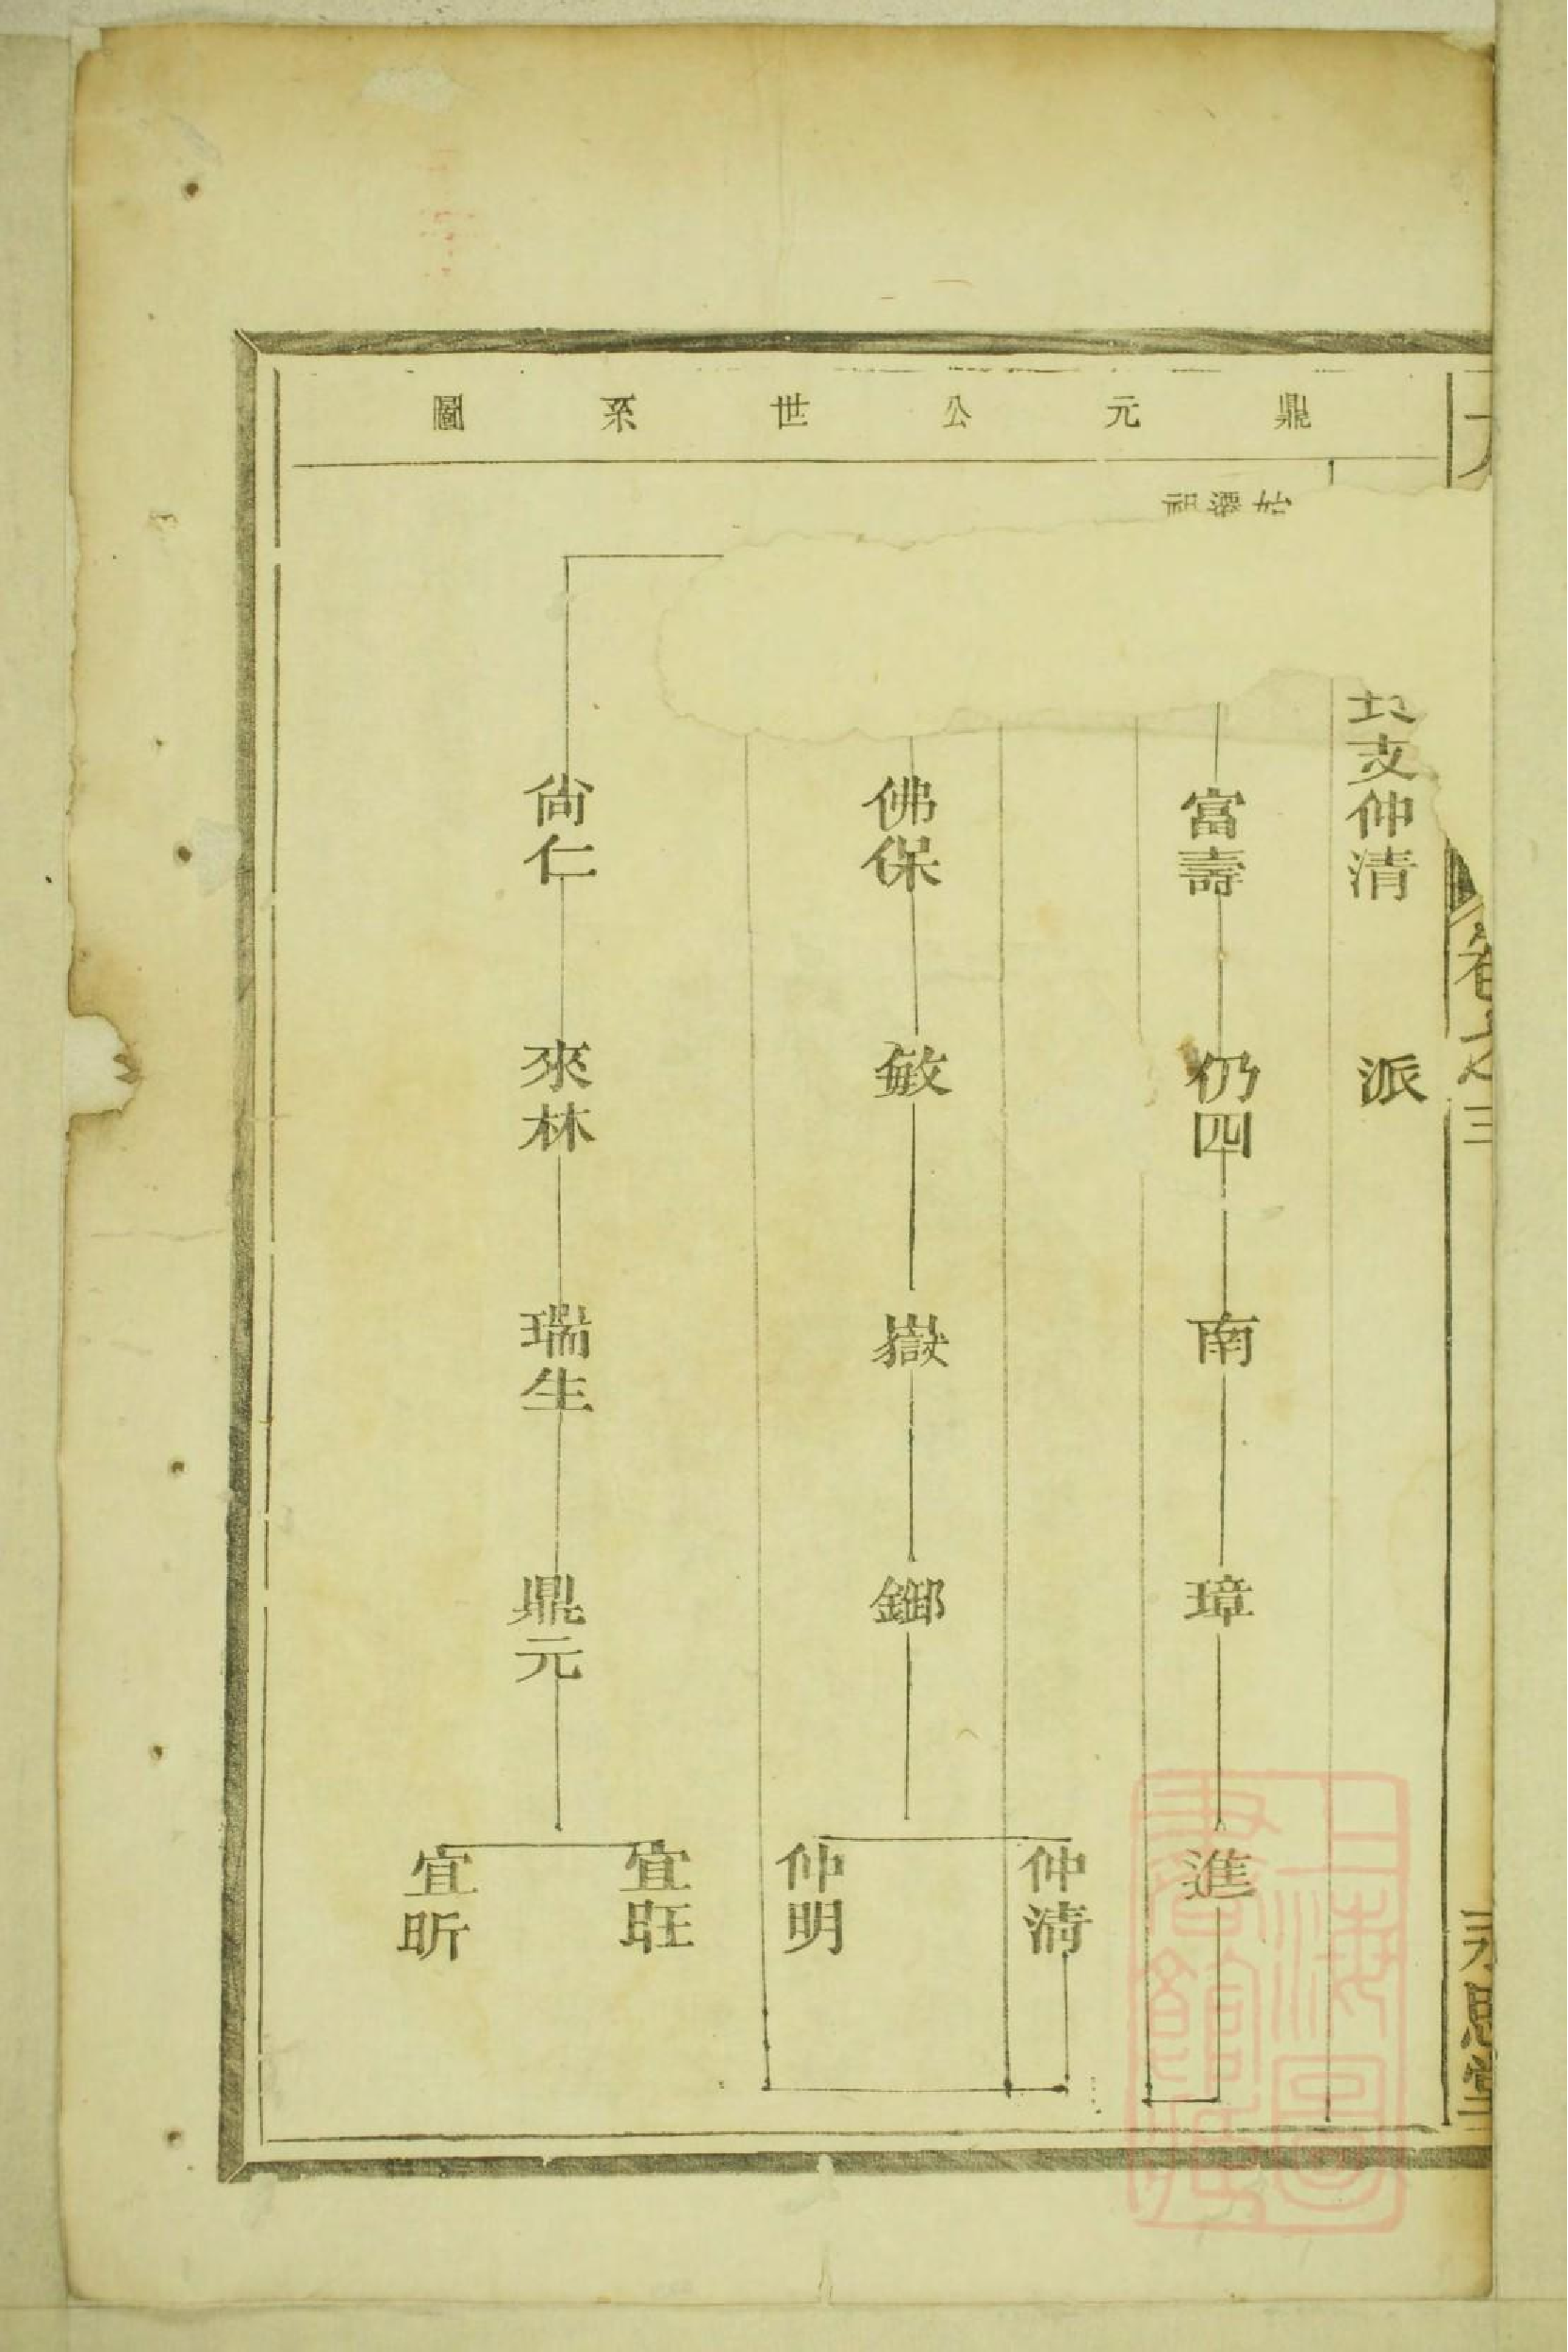 鼎元公世系圖
遷祖
支仲清 派
富壽 仍四 南 璋 進
佛保 敏 嶽 鎁 仲清 仲明
尙仁 來林 瑞生 鼎元 宜旺 宜昕
卷之三
永思堂
上海圖書館藏